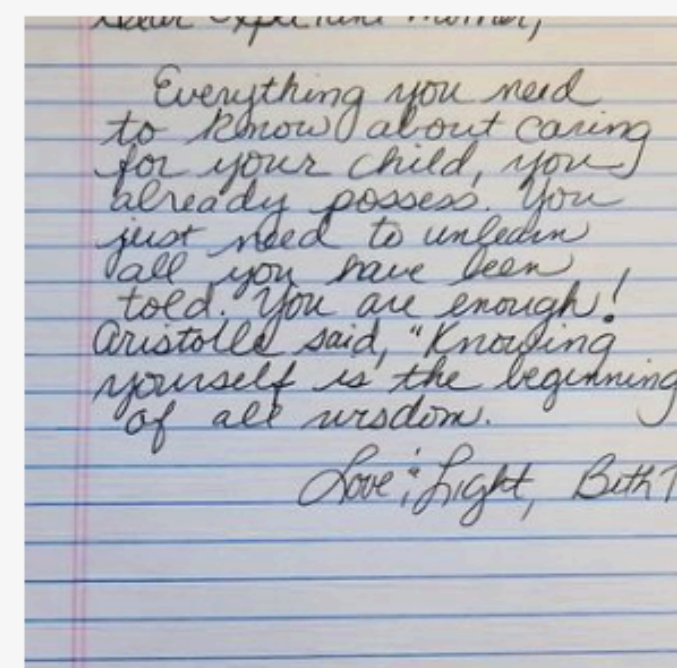 Dear Expectant Mother,
Everything you need
to know about caring
for your child, you
already possess. You
just need to unlearn
all you have been
told. You are enough!
Aristotle said, "Knowing
yourself is the beginning
of all wisdom.
Love & Light, Beth T